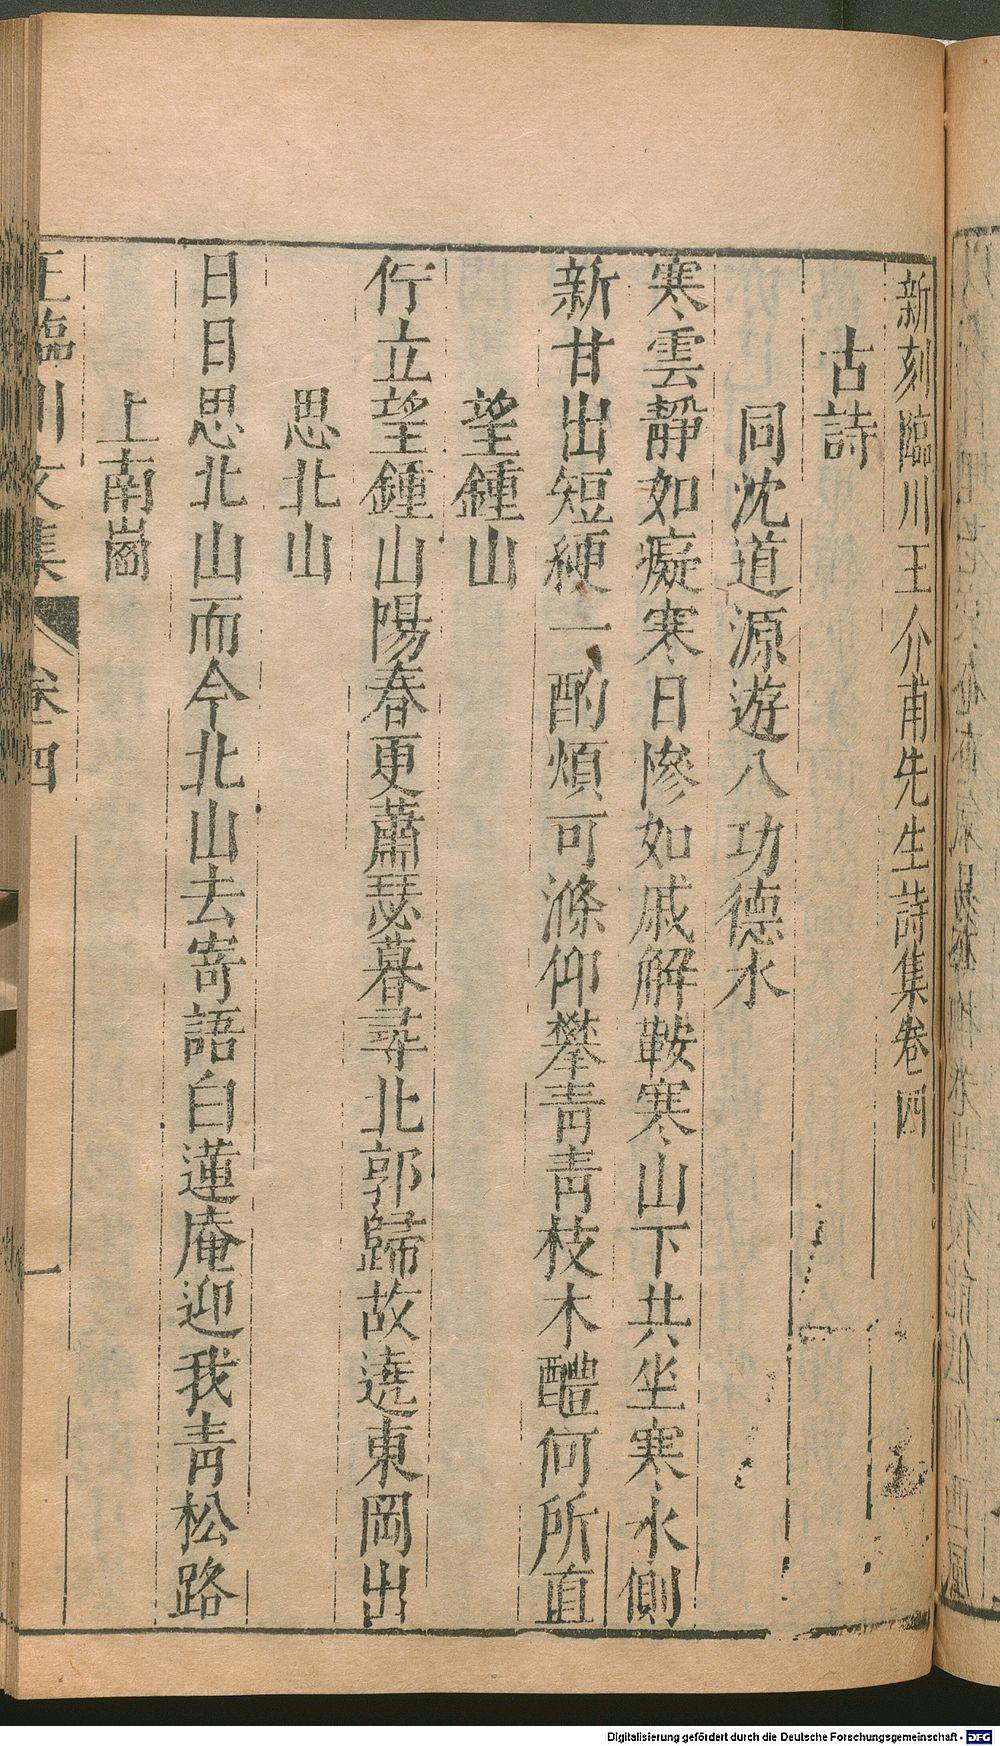 新刻臨川王介甫先生詩集卷四
古詩
同沈道源遊八功德水
寒雲靜如癡寒日慘如戚解鞍寒山下共坐寒水側
新甘出短綆一酌煩可滌仰攀青青枝木醴何所直
望鍾山
佇立望鍾山陽春更蕭瑟暮尋北郭歸故遶東岡出
思北山
日日思北山而今北山去寄語白蓮庵迎我青松路
上南崗
王臨川文集 卷四 一
Digitalisierung gefördert durch die Deutsche Forschungsgemeinschaft - DFG